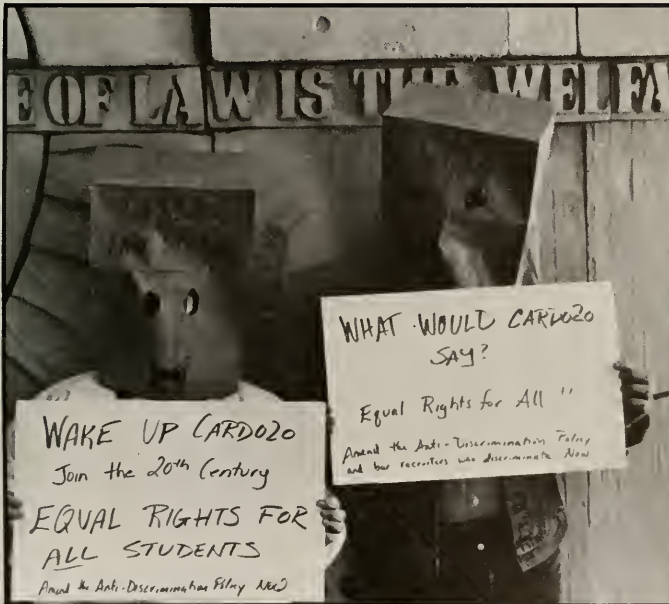 E OF LAW IS THE WELFA
WAKE UP CARDOZO
Join the 20th Century
EQUAL RIGHTS FOR
ALL STUDENTS
Amend the Anti-Discrimination Policy NOW
WHAT WOULD CARDOZO
SAY?
Equal Rights for All "
Amend the Anti-Discrimination Policy
and bar recruiters who discriminate Now